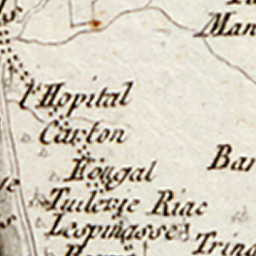 Man
l'Hopital
Carton
Fougal
Bar
Tuilerie Riac
Lespinasse
Tring